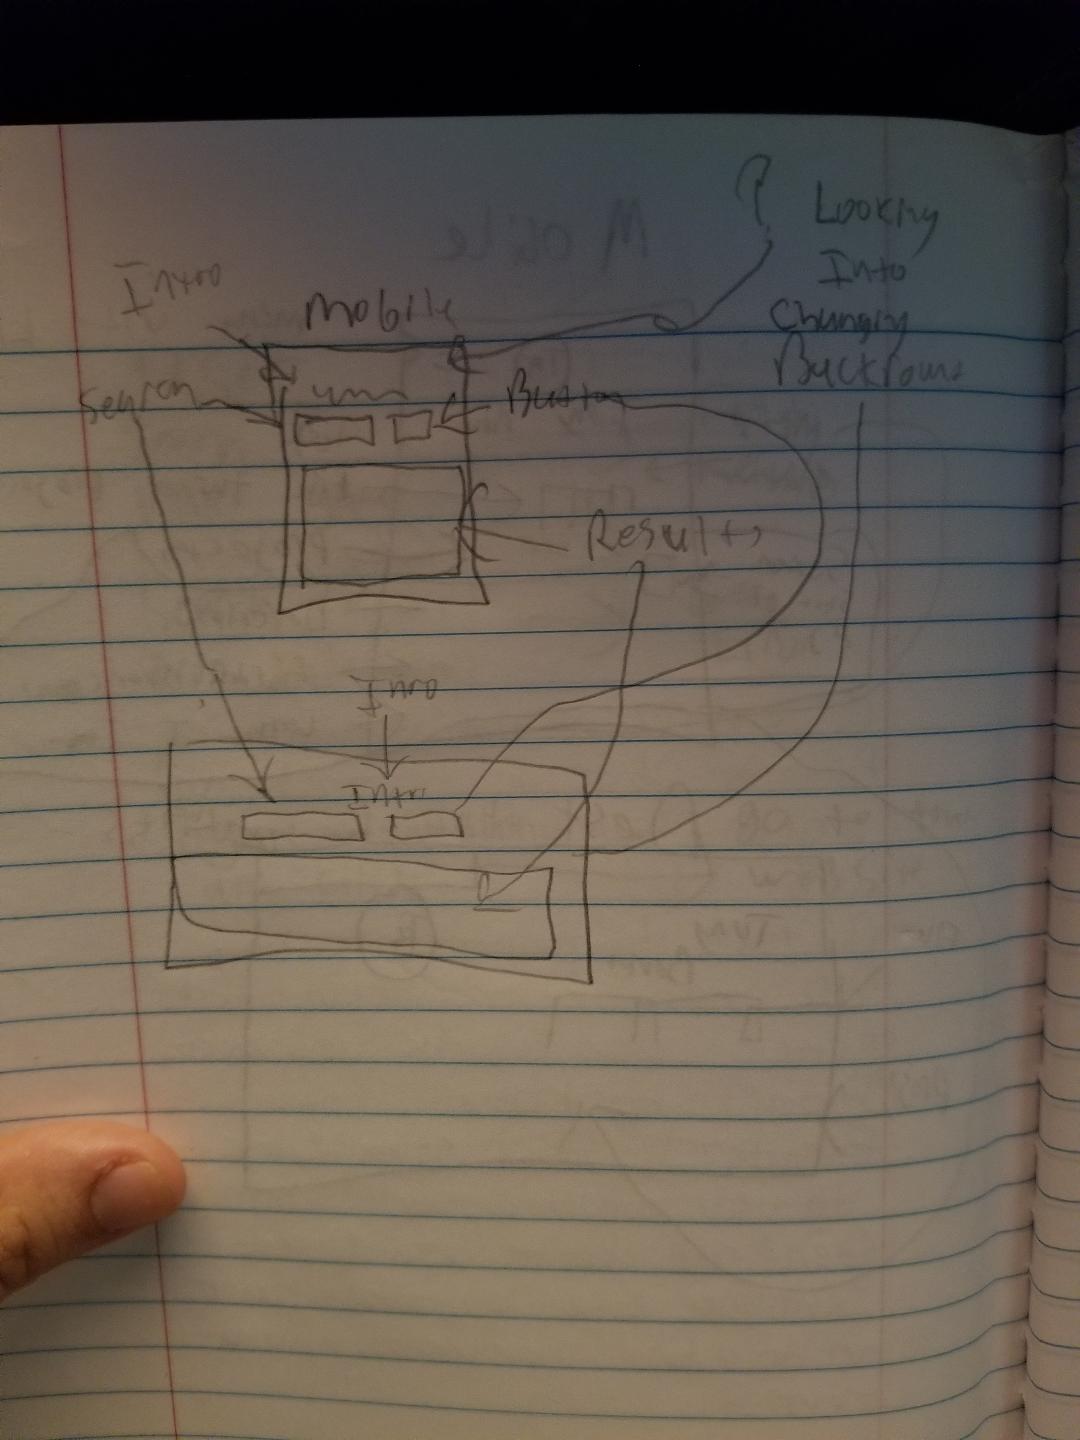 ?
Looking
Into
Changing
Intro
Mobile
Search
Button
Results
Inro
Intro